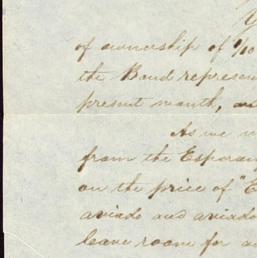 of ownership of 1/10
the Bond represen
present month, as
As we
from the Esperan
on the price of "E
aviado and aviado
leave room for a